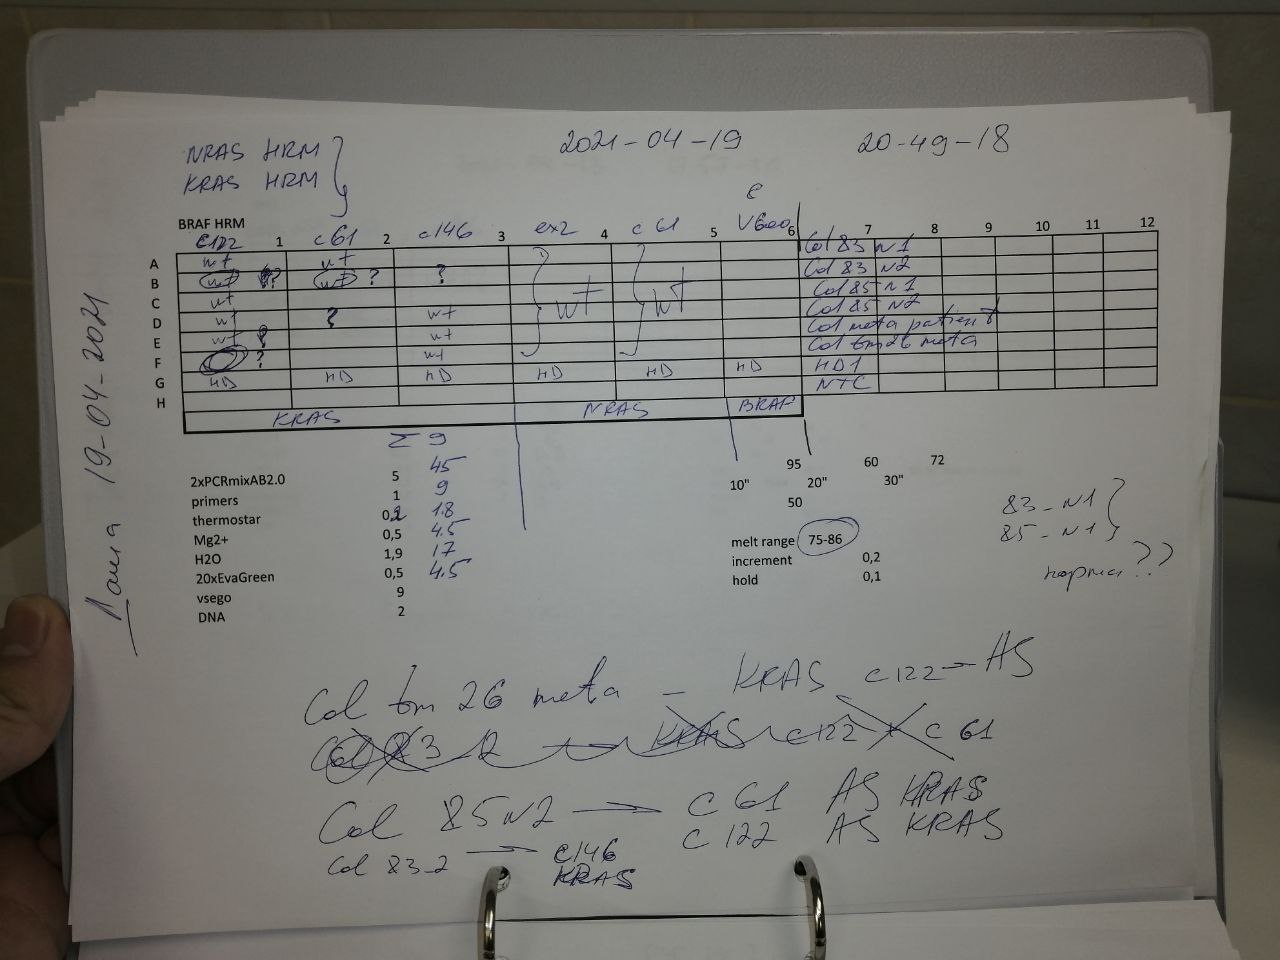 NRAS HRM
KRAS HRM
2021-04-19
20-49-18
Лана 19-04-2021
BRAF HRM
c122 1 c61 2 c146 3 ex2 4 c61 5 V600 6 7 8 9 10 11 12
e
A wt wt Col 83 N1
B wt ? wt ? ? Col 83 N2
C wt Col 85 N1
D wt ? wt wt wt Col 85 N2
E wt ? wt Col meta patient
F ? wt Col tm 26 meta
G HD HD HD HD HD HD HD1
H NTC
KRAS NRAS BRAF
Σ 9
2xPCRmixAB2.0 5 45
primers 1 9
thermostar 0,2 1.8
Mg2+ 0,5 4.5
H2O 1,9 17
20xEvaGreen 0,5 4.5
vsego 9
DNA 2
95 60 72
10" 20" 30"
50
melt range 75-86
increment 0,2
hold 0,1
83-N1
85-N1
норма??
Col tm 26 meta – KRAS c122 – AS
Col 83 2 KRAS c122 c61
Col 85 N2 → c61 AS KRAS
c122 AS KRAS
Col 83-2 → c146
KRAS